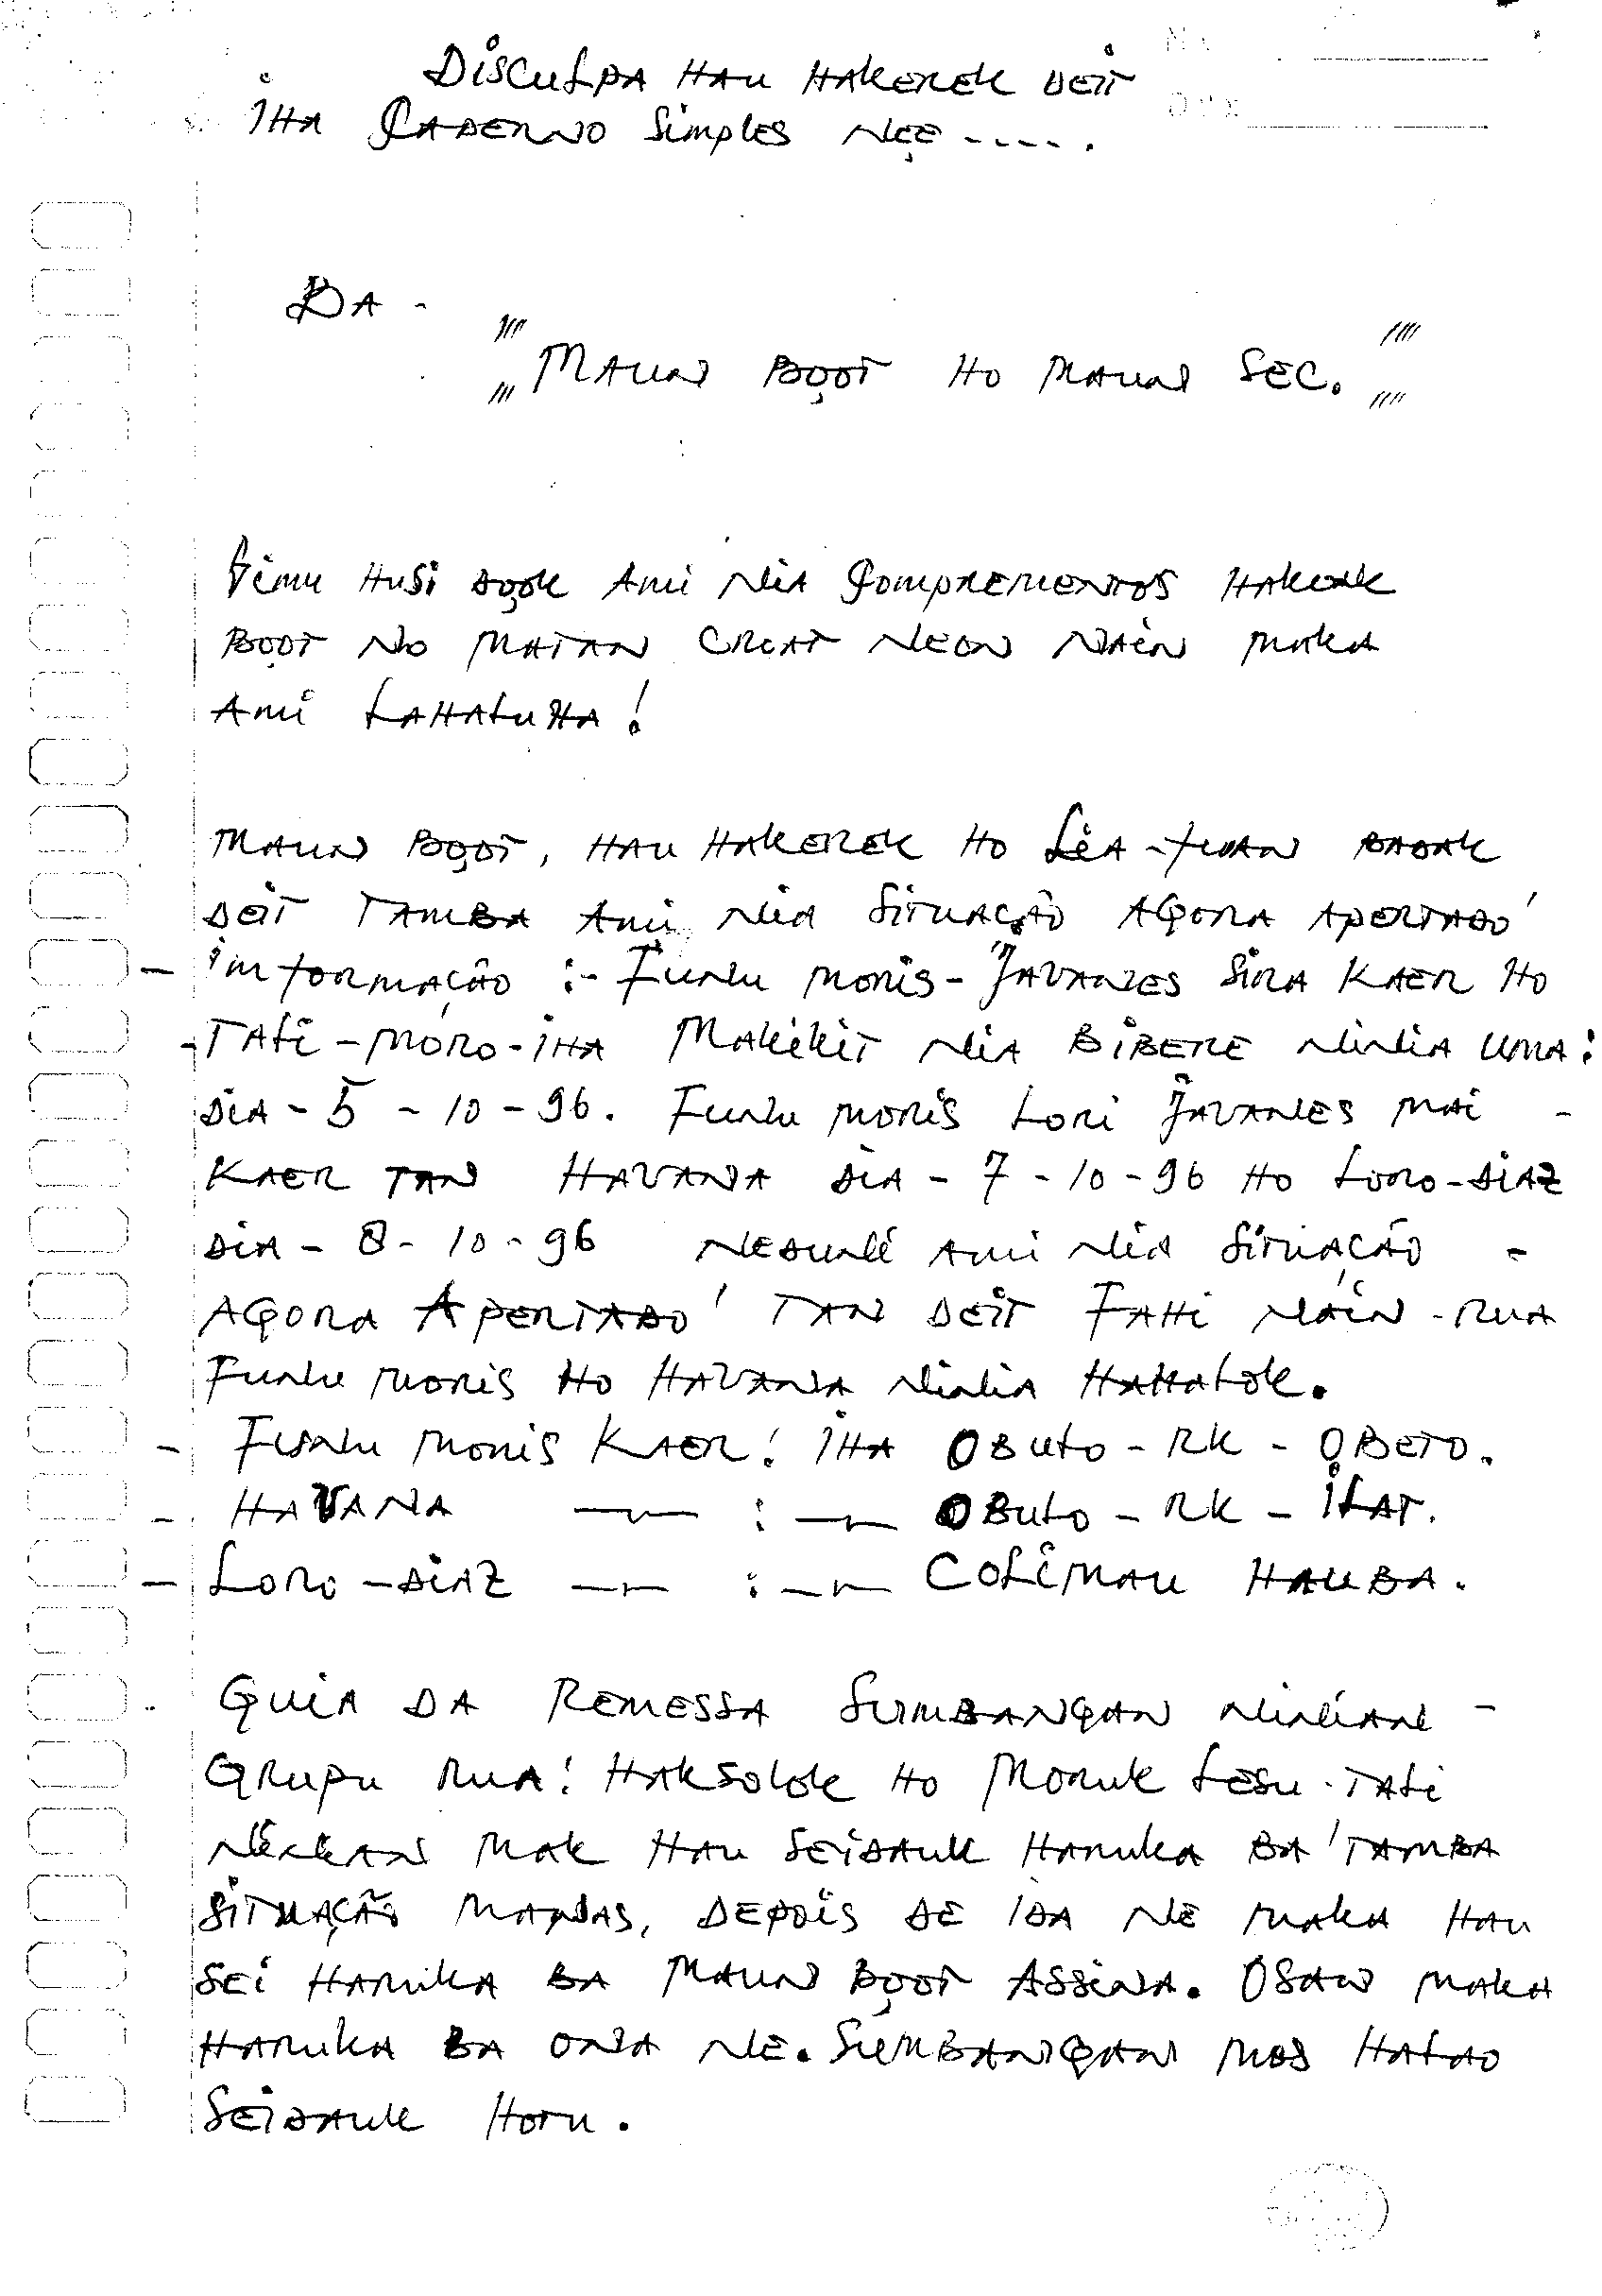 DISCULPA HAU HAKEREK DEIT
IHA CADERNO SIMPLES NEE -----.
BA -
"MAUN BOOT HO MAUN SEC."
HUSI DOOK AMI NIA COMPREMENTOS HAKOAK
BOOT NO MATAN CROAT NEON NAIN MAKA
AMI LAHALUHA!
MAUN BOOT, HAU HAKEREK HO LIA-FUAN BADAK
DEIT TAMBA AMI NIA SITUAÇÃO AGORA APERTADO
- IMFORMAÇÃO :- FUNU MORIS - JAVANES SIRA KAER HO
- TALI - MORO - IHA MAKIKIT NIA BIBERE NINIA UMA:
DIA - 5 - 10 - 96. FUNU MORIS LORI JAVANES MAI -
KAER TAN HAVANA DIA - 7 - 10 - 96 HO LORO-DIAZ
DIA - 8 - 10 - 96 NEDUNI AMI NIA SITUAÇÃO -
AGORA APERTADO TAN DEIT FALI NAIN - RUA
FUNU MORIS HO HAVANA NINIA HAHALOK.
- FUNU MORIS KAER: IHA OBULO - RK - OBETO.
- HAVANA — : — OBULO - RK - ILAT.
- LORO - DIAZ — : — COLIMAU HAUBA.
GUIA DA REMESSA SUMBANGAN NINIANE -
GRUPU RUA: HAKSOLOK HO MORUK LESU-TALI
MAK HAU SEIDAUK HARUKA BA TAMBA
SITUAÇÃO MANAS, DEPOIS DE IDA NE MAKA HAU
SEI HARUKA BA MAUN BOOT ASSINA. OSAN MAKA
HARUKA BA ONA NE. SUMBANGAN MOS HALAO
SEIDAUK HOTU.